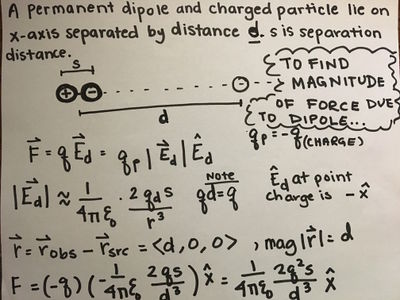 A permanent dipole and charged particle lie on
x-axis separated by distance d. s is separation
distance.
s
+ - -
d
TO FIND
MAGNITUDE
OF FORCE DUE
TO DIPOLE...
q_p = -q (CHARGE)
F⃗ = q E⃗_d = q_p |E⃗_d| Ê_d
|E⃗_d| ≈ 1/(4πε₀) · 2q_d s / r³
Note
qd = q
Ê_d at point
charge is -x̂
r⃗ = r⃗_obs - r⃗_src = <d, 0, 0> , mag|r⃗| = d
F = (-q) (-1/(4πε₀) 2qs/d³) x̂ = 1/(4πε₀) 2q²s/d³ x̂